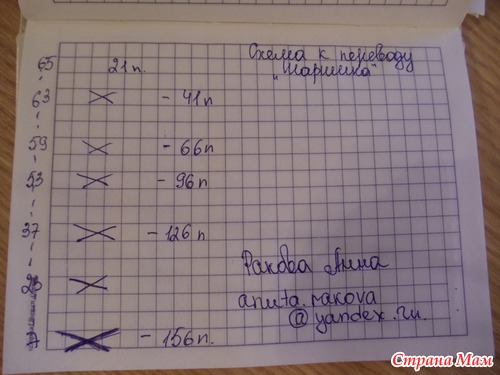 Схема к переводу
"Маришка"
65 21 п.
63 - 41 п
59 - 66 п
53 - 96 п
37 - 126 п
Ракова Анна
anuta.rakova
@yandex.ru.
- 156 п.
Страна Мам